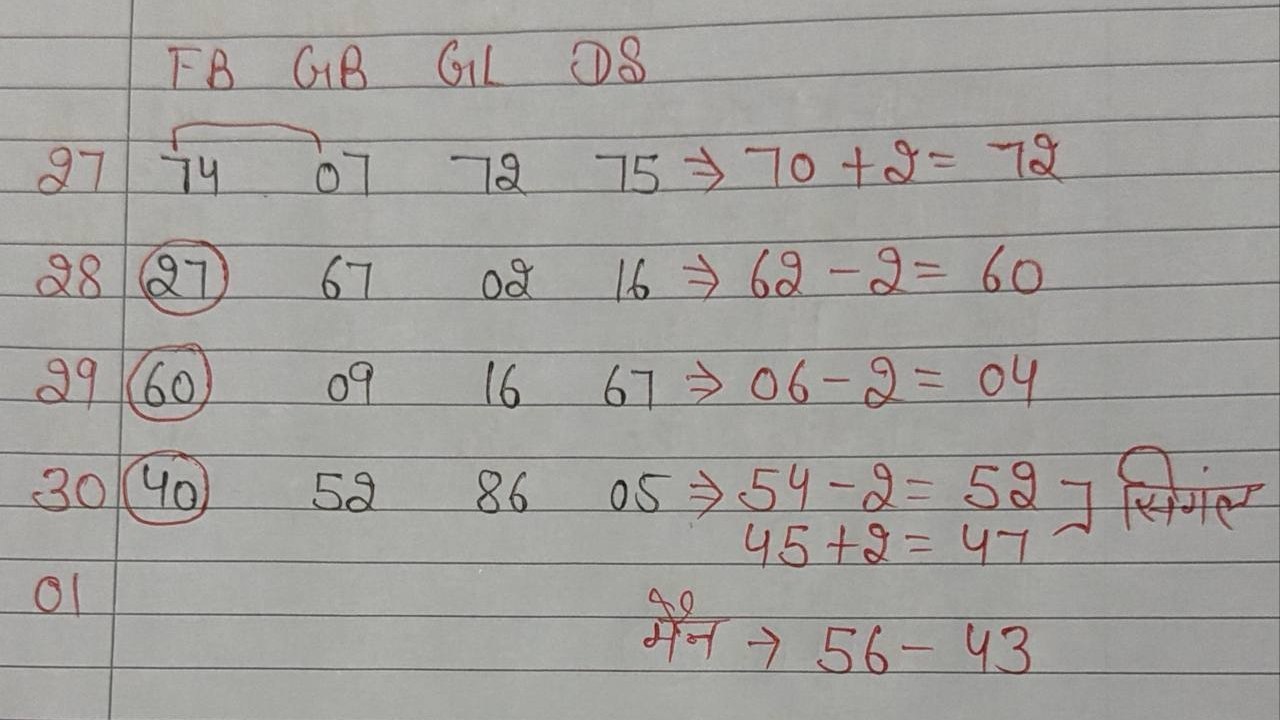 FB GB GL DS
27 74 07 72 75 ⇒ 70 + 2 = 72
28 27 67 02 16 ⇒ 62 - 2 = 60
29 60 09 16 67 ⇒ 06 - 2 = 04
30 40 52 86 05 ⇒ 54 - 2 = 52 ] सिगंल
45 + 2 = 47
01
मेन → 56 - 43